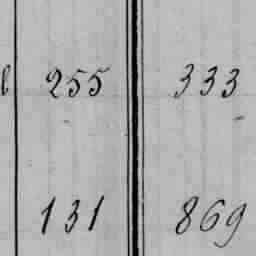 255 333
131 869